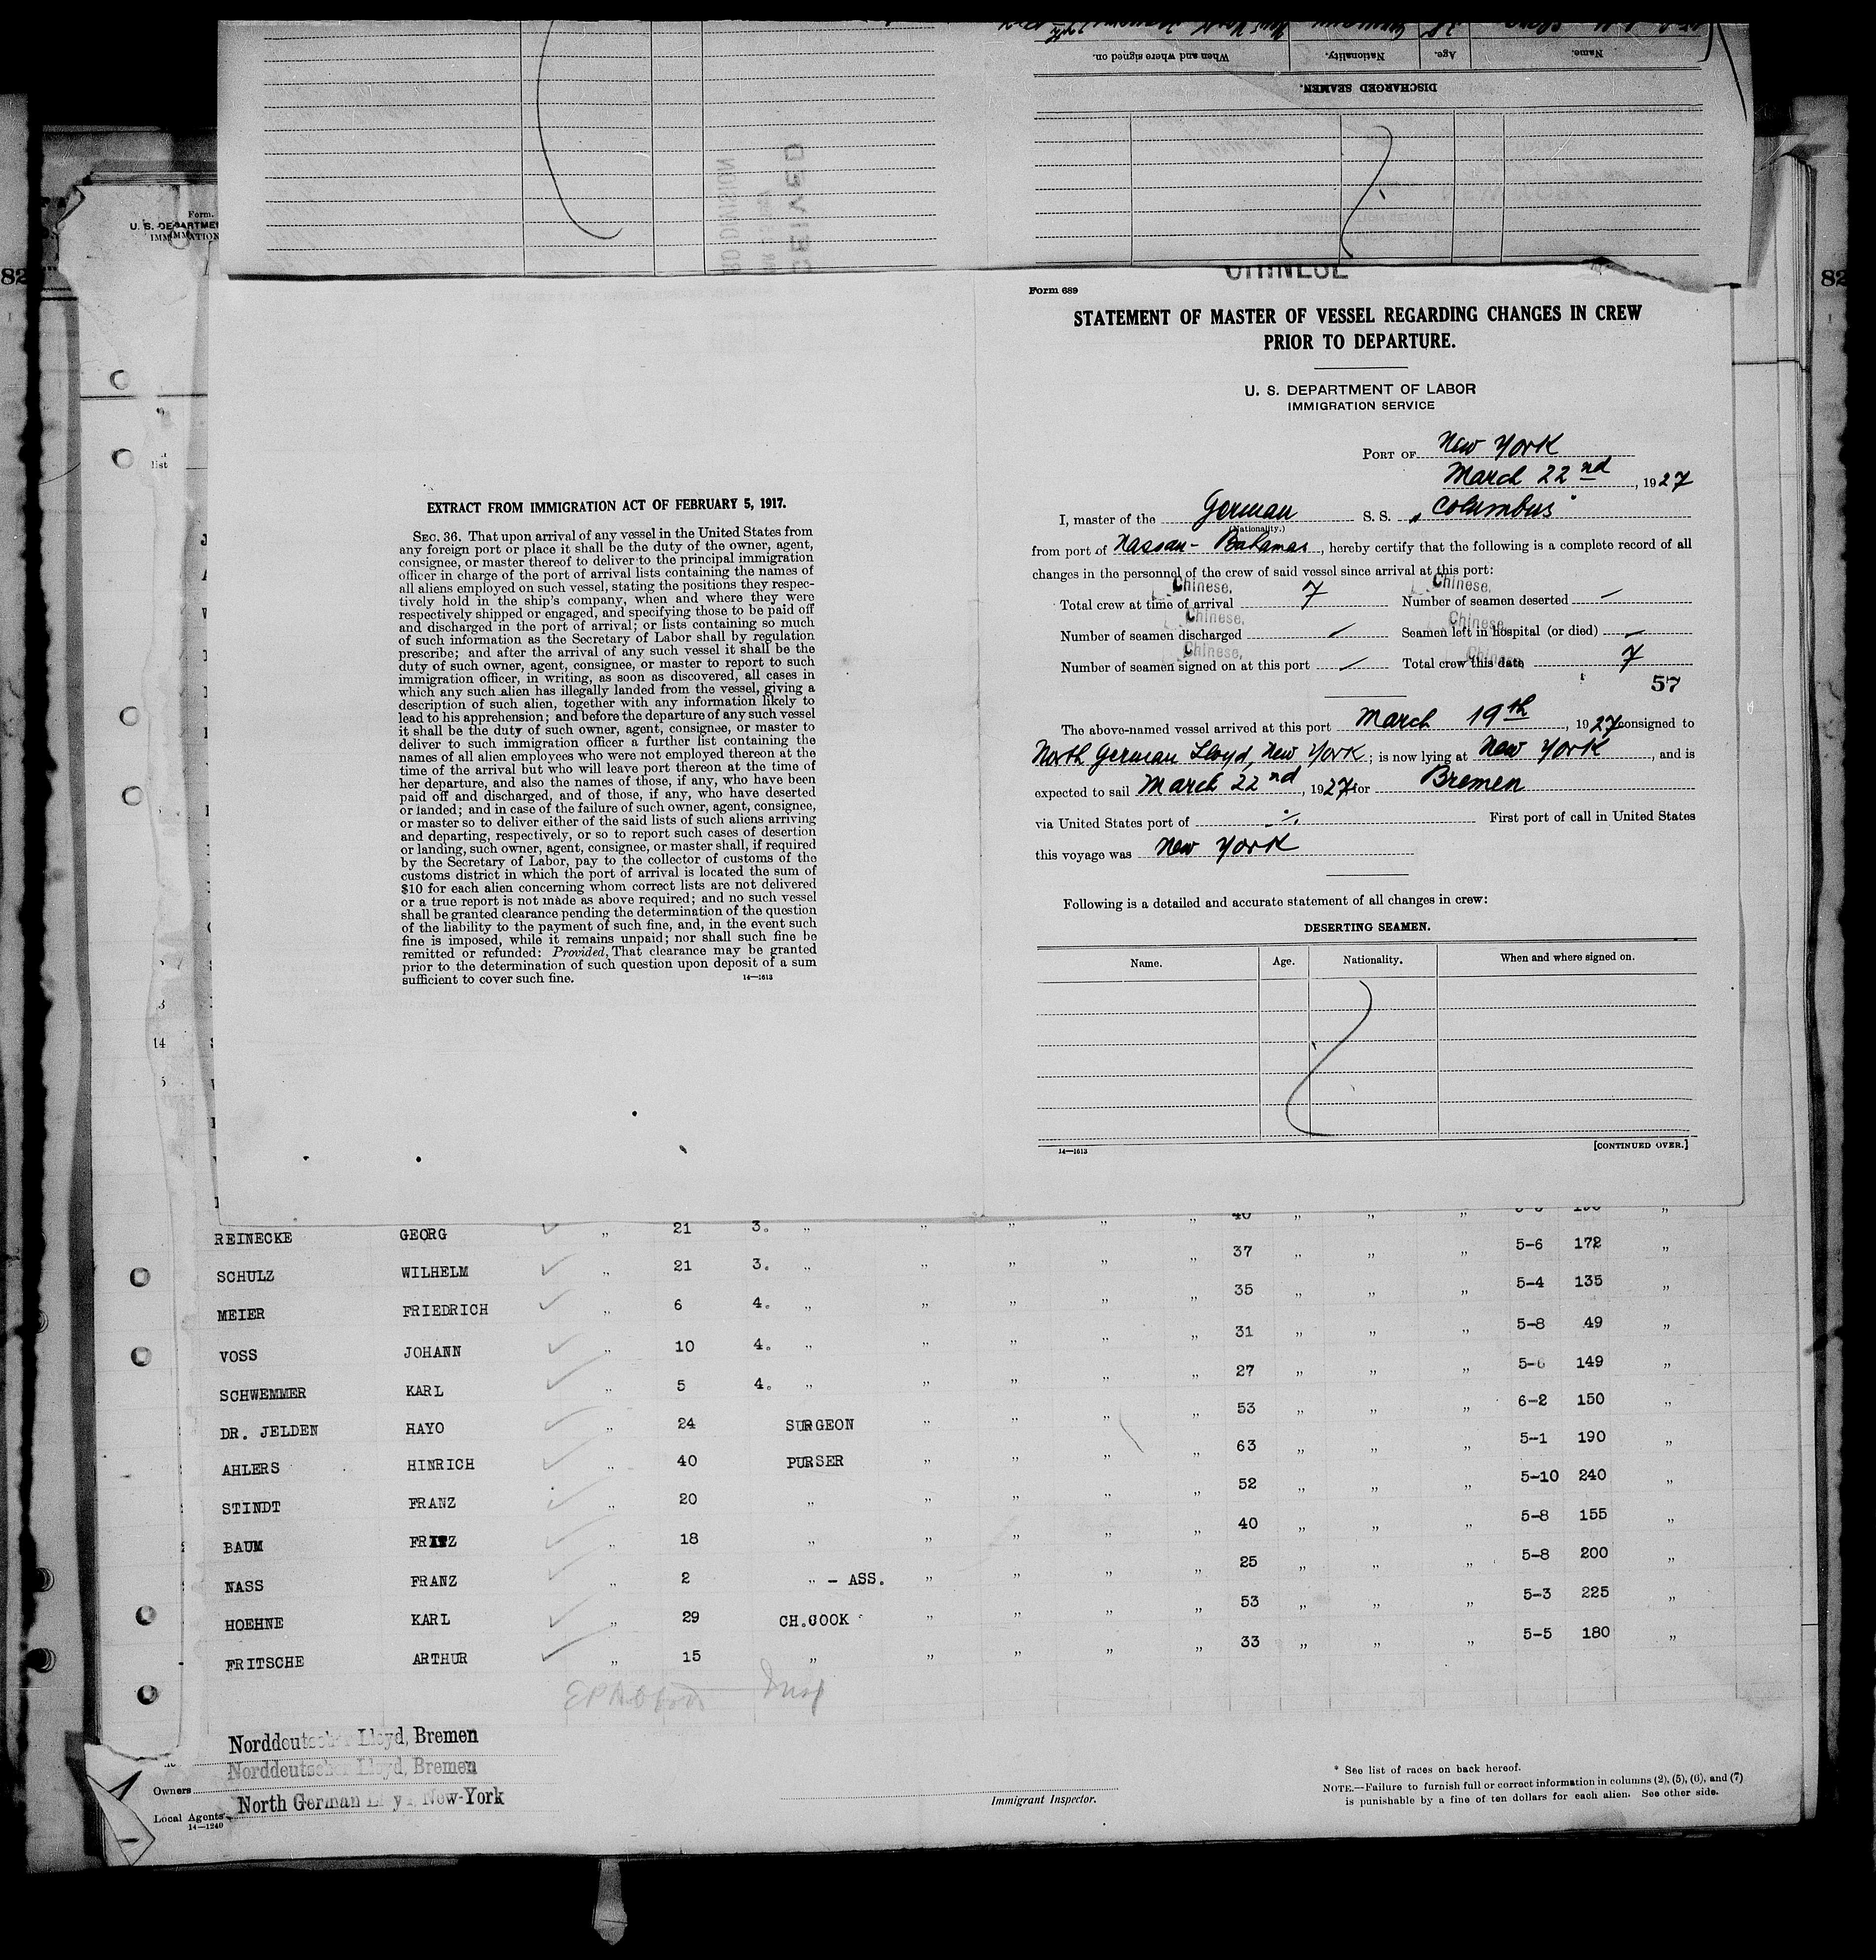 Name.
Age.
Nationality.
When and where signed on.
DISCHARGED SEAMEN.
Form.
U. S. DEPARTME
82
82
list
14
CHINESE
Form 689
STATEMENT OF MASTER OF VESSEL REGARDING CHANGES IN CREW
PRIOR TO DEPARTURE.
U. S. DEPARTMENT OF LABOR
IMMIGRATION SERVICE
PORT OF New York
March 22nd, 1927
I, master of the German S. S. „Columbus"
(Nationality.)
from port of Nassau - Bahamas, hereby certify that the following is a complete record of all
changes in the personnel of the crew of said vessel since arrival at this port:
Chinese, Chinese,
Total crew at time of arrival 7 Number of seamen deserted —
Chinese, Chinese,
Number of seamen discharged — Seamen left in hospital (or died) —
Chinese, Chinese,
Number of seamen signed on at this port — Total crew this date 7
57
The above-named vessel arrived at this port March 19th, 1927 consigned to
North German Lloyd, New York; is now lying at New York, and is
expected to sail March 22nd, 1927 for Bremen
via United States port of -/. First port of call in United States
this voyage was New York
Following is a detailed and accurate statement of all changes in crew:
DESERTING SEAMEN.
Name. Age. Nationality. When and where signed on.
14—1613 [CONTINUED OVER.]
EXTRACT FROM IMMIGRATION ACT OF FEBRUARY 5, 1917.
SEC. 36. That upon arrival of any vessel in the United States from
any foreign port or place it shall be the duty of the owner, agent,
consignee, or master thereof to deliver to the principal immigration
officer in charge of the port of arrival lists containing the names of
all aliens employed on such vessel, stating the positions they respec-
tively hold in the ship's company, when and where they were
respectively shipped or engaged, and specifying those to be paid off
and discharged in the port of arrival; or lists containing so much
of such information as the Secretary of Labor shall by regulation
prescribe; and after the arrival of any such vessel it shall be the
duty of such owner, agent, consignee, or master to report to such
immigration officer, in writing, as soon as discovered, all cases in
which any such alien has illegally landed from the vessel, giving a
description of such alien, together with any information likely to
lead to his apprehension; and before the departure of any such vessel
it shall be the duty of such owner, agent, consignee, or master to
deliver to such immigration officer a further list containing the
names of all alien employees who were not employed thereon at the
time of the arrival but who will leave port thereon at the time of
her departure, and also the names of those, if any, who have been
paid off and discharged, and of those, if any, who have deserted
or landed; and in case of the failure of such owner, agent, consignee,
or master so to deliver either of the said lists of such aliens arriving
and departing, respectively, or so to report such cases of desertion
or landing, such owner, agent, consignee, or master shall, if required
by the Secretary of Labor, pay to the collector of customs of the
customs district in which the port of arrival is located the sum of
$10 for each alien concerning whom correct lists are not delivered
or a true report is not made as above required; and no such vessel
shall be granted clearance pending the determination of the question
of the liability to the payment of such fine, and, in the event such
fine is imposed, while it remains unpaid; nor shall such fine be
remitted or refunded: Provided, That clearance may be granted
prior to the determination of such question upon deposit of a sum
sufficient to cover such fine. 14—1613
REINECKE GEORG „ 21 3. „ „ „ „ „ 40 „ „ „
SCHULZ WILHELM „ 21 3. „ „ „ „ „ 37 „ „ „ 5-6 172 „
MEIER FRIEDRICH „ 6 4. „ „ „ „ „ 35 „ „ „ 5-4 135 „
VOSS JOHANN „ 10 4. „ „ „ „ „ 31 „ „ „ 5-8 49 „
SCHWEMMER KARL „ 5 4. „ „ „ „ „ 27 „ „ „ 5-6 149 „
DR. JELDEN HAYO „ 24 SURGEON „ „ „ „ 53 „ „ „ 6-2 150 „
AHLERS HINRICH „ 40 PURSER „ „ „ „ 63 „ „ „ 5-1 190 „
STINDT FRANZ „ 20 „ „ „ „ „ 52 „ „ „ 5-10 240 „
BAUM FRITZ „ 18 „ „ „ „ „ 40 „ „ „ 5-8 155 „
NASS FRANZ „ 2 „ - ASS. „ „ „ „ 25 „ „ „ 5-8 200 „
HOEHNE KARL „ 29 CH.COOK „ „ „ „ 53 „ „ „ 5-3 225 „
FRITSCHE ARTHUR „ 15 „ „ „ „ „ 33 „ „ „ 5-5 180 „
Norddeutscher Lloyd, Bremen
Norddeutscher Lloyd, Bremen
Owners
Local Agents North German Lloyd, New-York
14—1240
Immigrant Inspector.
* See list of races on back hereof.
NOTE.—Failure to furnish full or correct information in columns (2), (5), (6), and (7)
is punishable by a fine of ten dollars for each alien. See other side.